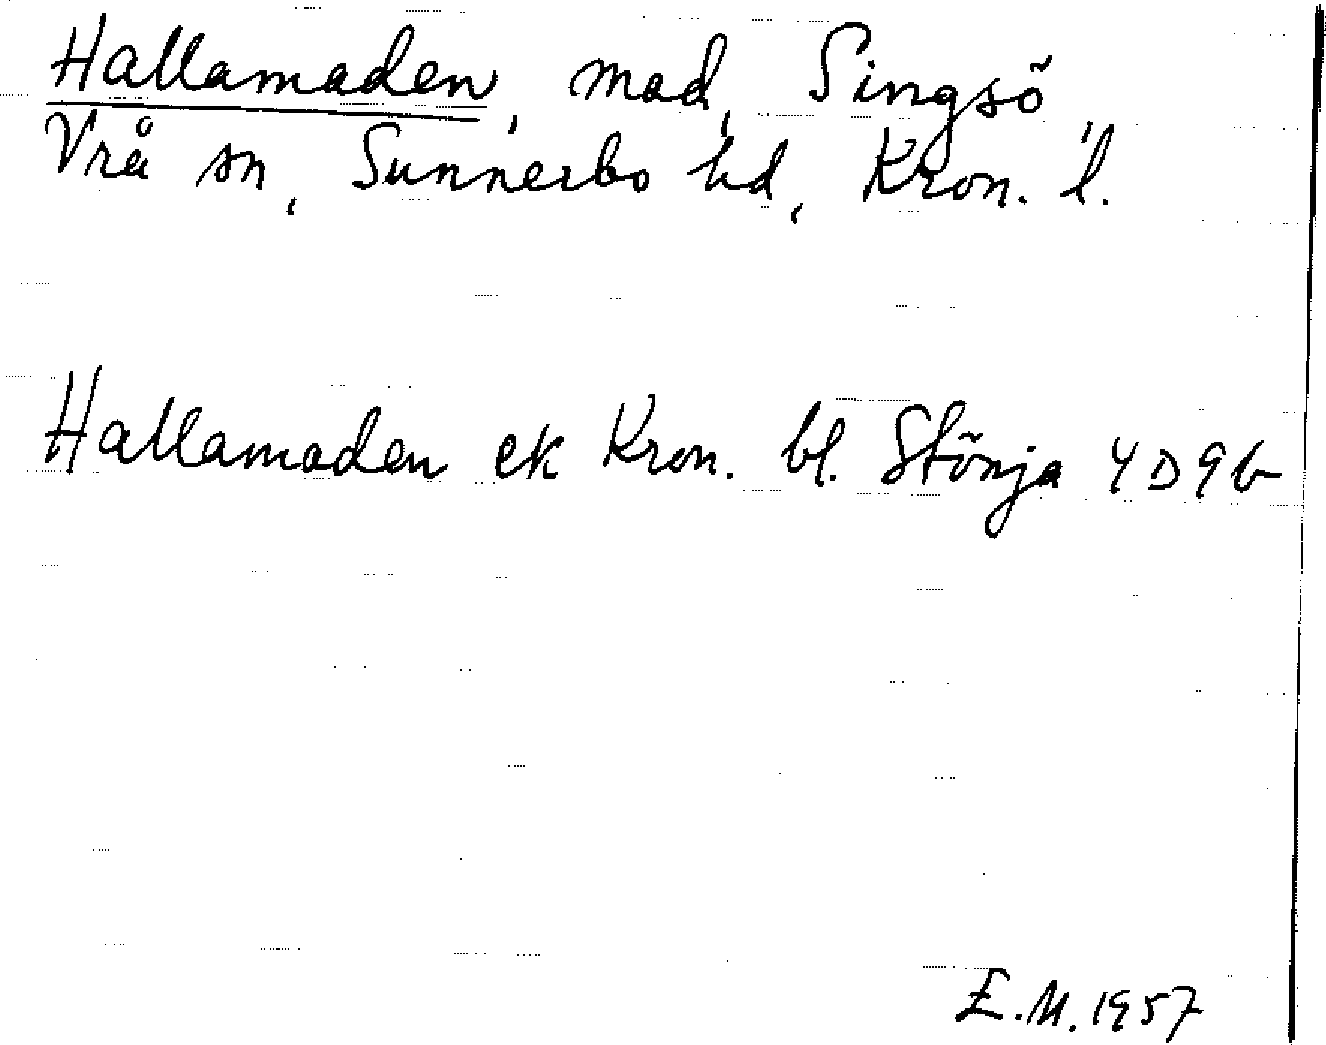 Hallamaden, mad, Singsö,
Vrå sn, Sunnerbo hd, Kron. l.
Hallamaden ek Kron. bl. Stönja 4D9b
E.M. 1957